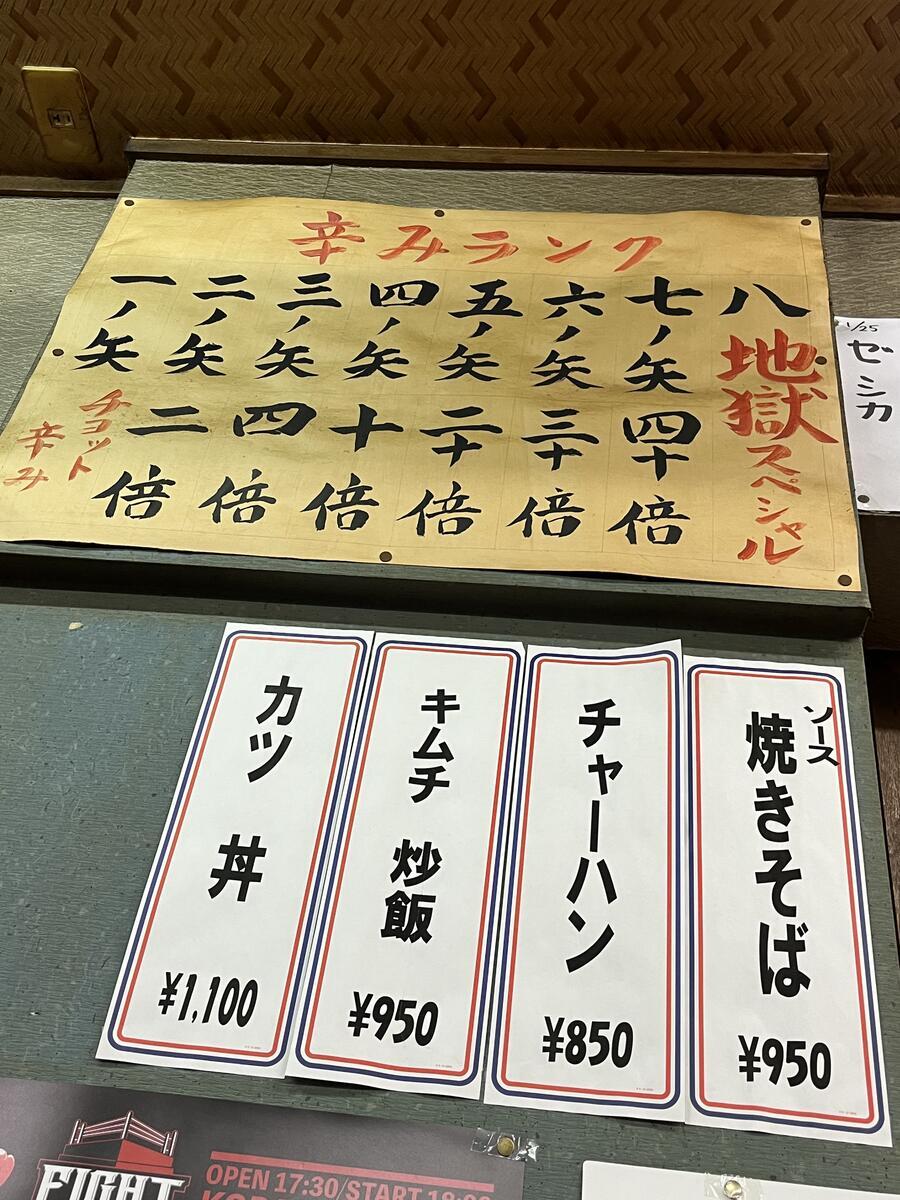 辛みランク
一ノ矢
チョット
辛み
二ノ矢
二倍
三ノ矢
四倍
四ノ矢
十倍
五ノ矢
二十倍
六ノ矢
三十倍
七ノ矢
四十倍
八
地獄スペシャル
1/25
ゼシカ
カツ丼
¥1,100
キムチ 炒飯
¥950
チャーハン
¥850
ソース
焼きそば
¥950
FIGHT
OPEN 17:30/START 18:00